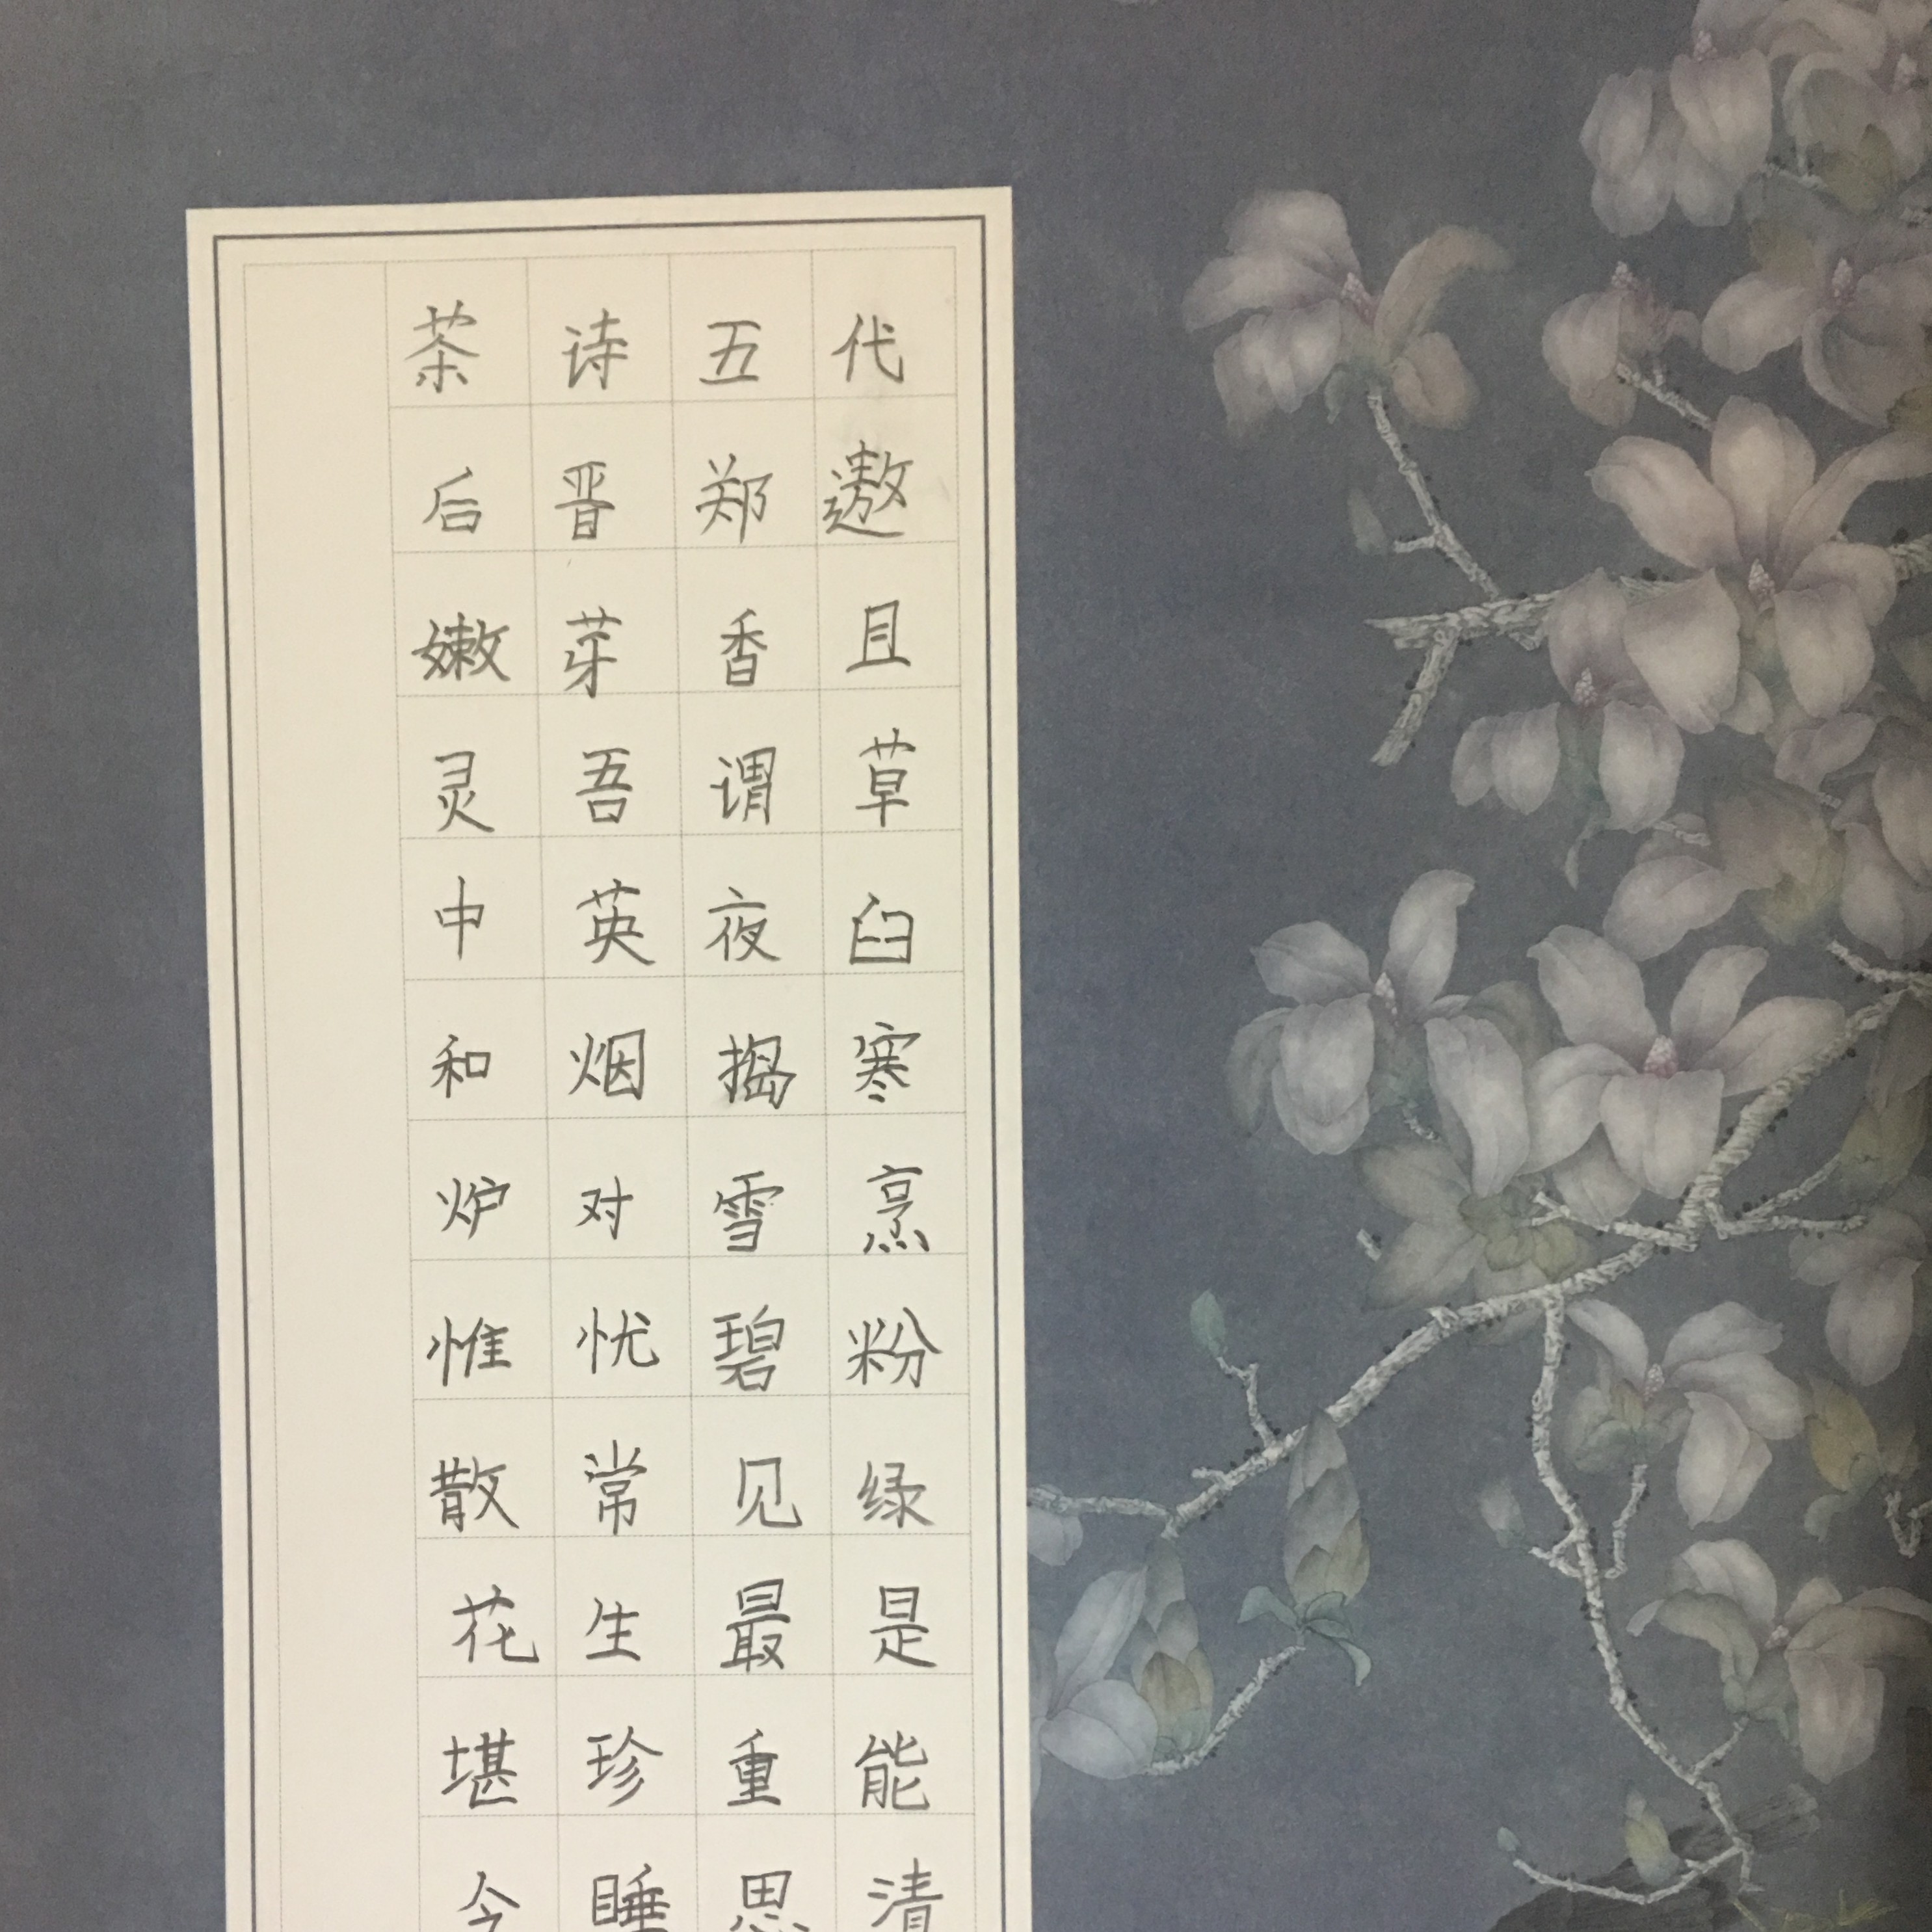 茶诗五代
后晋郑遨
嫩芽香且
灵吾谓草
中英夜臼
和烟捣寒
炉对雪烹
惟忧碧粉
散常见绿
花生最是
堪珍重能
令睡思清